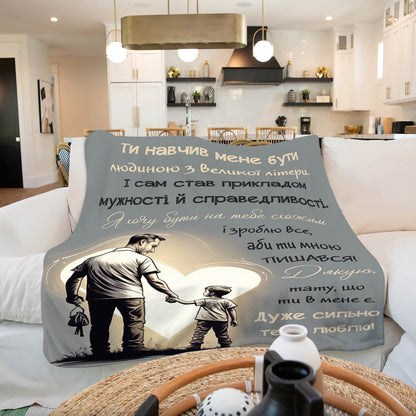 ТИ НАВЧИВ МЕНЕ БУТИ
людиною з Великої літери.
І САМ СТАВ ПРИКЛАДОМ
МУЖНОСТІ Й СПРАВЕДЛИВОСТІ.
Я хочу бути на тебе схожим
і зроблю все,
аби ти мною
ПИШАВСЯ!
Дякую,
тату, що
ти в мене є.
ДУЖЕ СИЛЬНО
ТЕБЕ ЛЮБЛЮ!